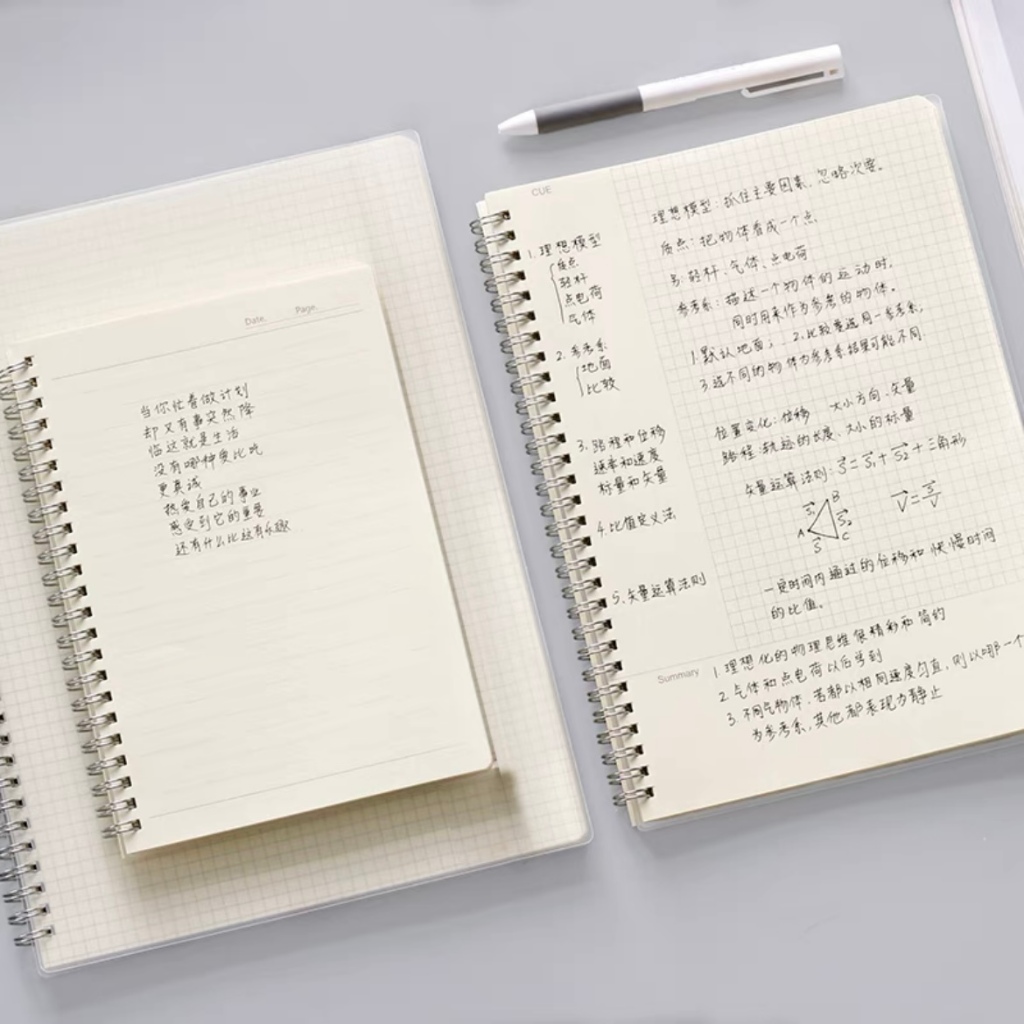 Date.
Page.
当你忙着做计划
却又有事突然降
临这就是生活
没有哪种爱比吃
更真诚
热爱自己的事业
感受到它的重要
还有什么比这有乐趣
CUE
1. 理想模型
质点
轻杆
点电荷
气体
2. 参考系
地面
比较
3. 路程和位移
速率和速度
标量和矢量
4. 比值定义法
5. 矢量运算法则
理想模型：抓住主要因素、忽略次要。
质点：把物体看成一个点
轻杆、气体、点电荷
参考系：描述一个物体的运动时,
同时用来作为参考的物体。
1. 默认地面； 2. 比较要选同一参考系,
3. 选不同的物体为参考系结果可能不同.
位置变化：位移 大小方向、矢量
路程：轨迹的长度、大小的标量
矢量运算法则：S = S₁ + S₂ + 三角形
B
S₁
S₂
A
S
C
一定时间内通过的位移和快慢时间
的比值。
Summary
1. 理想化的物理思维很精彩和简约
2. 气体和点电荷以后学到
3. 不同气物体, 若都以相同速度匀直, 则以哪一个
为参考系, 其他都表现为静止